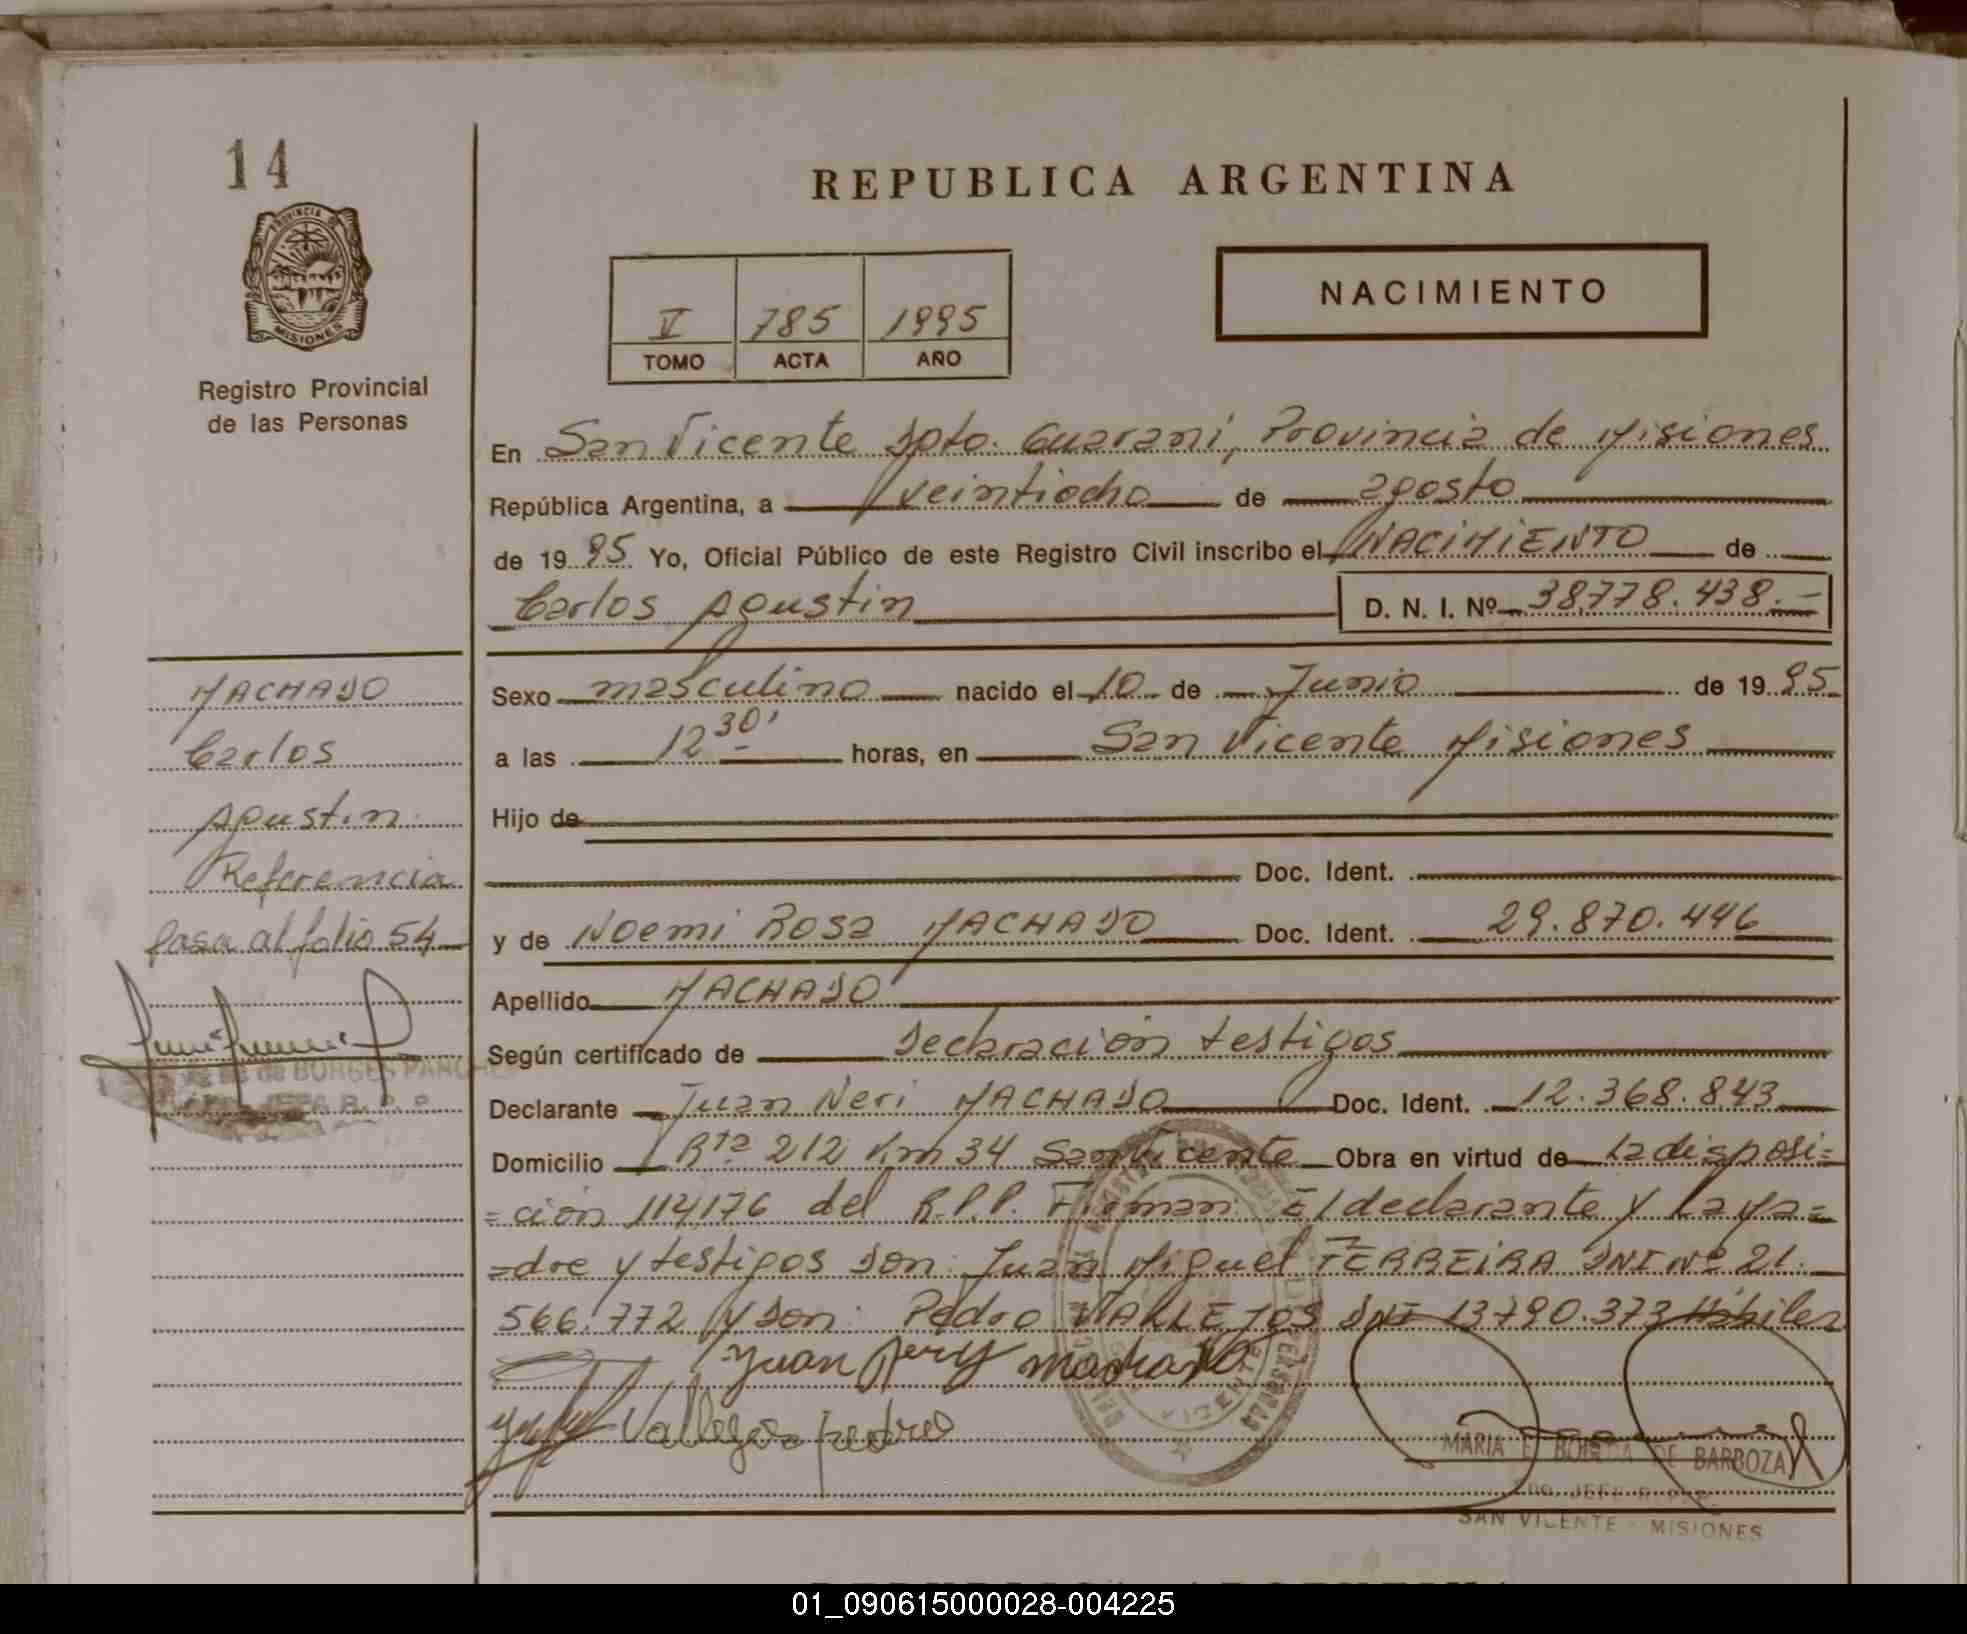 14
PROVINCIA DE
MISIONES
Registro Provincial
de las Personas
REPUBLICA ARGENTINA
V 785 1995
TOMO ACTA AÑO
NACIMIENTO
En San Vicente Dpto. Guaraní, Provincia de Misiones
República Argentina, a veintiocho de agosto
de 19 95 Yo, Oficial Público de este Registro Civil inscribo el NACIMIENTO de
Carlos Agustin D. N. I. Nº 38.778.438.-
MACHADO
Carlos
Agustin
Referencia
Pasa al folio 54
BORGES
JEFA R. P. P.
Sexo masculino nacido el 10 de Junio de 19 95
a las 12 30' horas, en San Vicente Misiones
Hijo de
Doc. Ident.
y de Noemi Rosa MACHADO Doc. Ident. 29.870.446
Apellido MACHADO
Según certificado de Declaración testigos
Declarante Juan Neri MACHADO Doc. Ident. 12.368.843
Domicilio Rta 212 Km 34 San Vicente Obra en virtud de la disposi=
=ción 114176 del R.P.P. Firman: El declarante y La Ma=
=dre y testigos son: Juan Miguel FERREIRA DNI Nº 21.
566.772 y Don: Pedro VALLEJOS DNI 13790.373 Hábiles
Juan Nery Machado
Vallejos pedro
MARIA E. DE BARBOZA
JEFE R. P. P.
SAN VICENTE - MISIONES
01_090615000028-004225